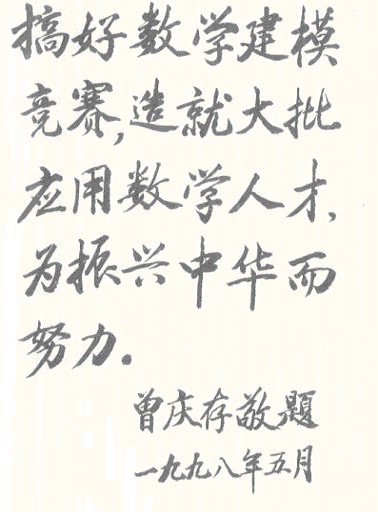 搞好数学建模
竞赛,造就大批
应用数学人才,
为振兴中华而
努力.
曾庆存敬题
一九九八年五月